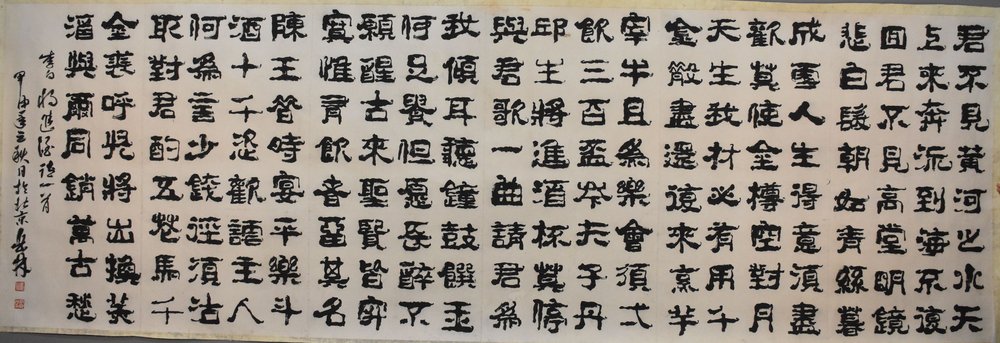 君不見黃河之水天
上来奔流到海不復
回君不見高堂明鏡
悲白髮朝如青絲暮
成雪人生得意須盡
歡莫使金樽空對月
天生我材必有用千
金散盡還復來烹羊
宰牛且為樂會須弌
飲三百盃岑夫子丹
邱生將進酒杯莫停
與君歌一曲請君為
我傾耳聽鐘鼓饌玉
何足貴但愿長醉不
願醒古來聖賢皆寂
寞惟有飲者留其名
陳王昔時宴平樂斗
酒十千恣歡謔主人
何為言少錢徑須沽
取對君酌五花馬千
金裘呼児將出換美
酒與爾同銷萬古愁
李白將進酒詩一首
甲申年立秋日於北京